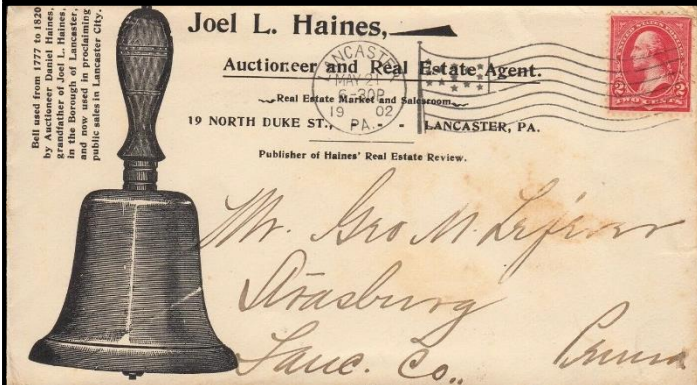 Bell used from 1777 to 1820
by Auctioneer Daniel Haines,
grandfather of Joel L. Haines,
in the Borough of Lancaster,
and now used in proclaiming
public sales in Lancaster City.
Joel L. Haines,
Auctioneer and Real Estate Agent.
Real Estate Market and Salesroom
19 NORTH DUKE ST., - - LANCASTER, PA.
Publisher of Haines' Real Estate Review.
LANCASTER
MAY 21
6-30P
19 02
PA.
2 2
TWO CENTS
Mr. Geo M. Lefever
Strasburg
Lanc. Co., Penna